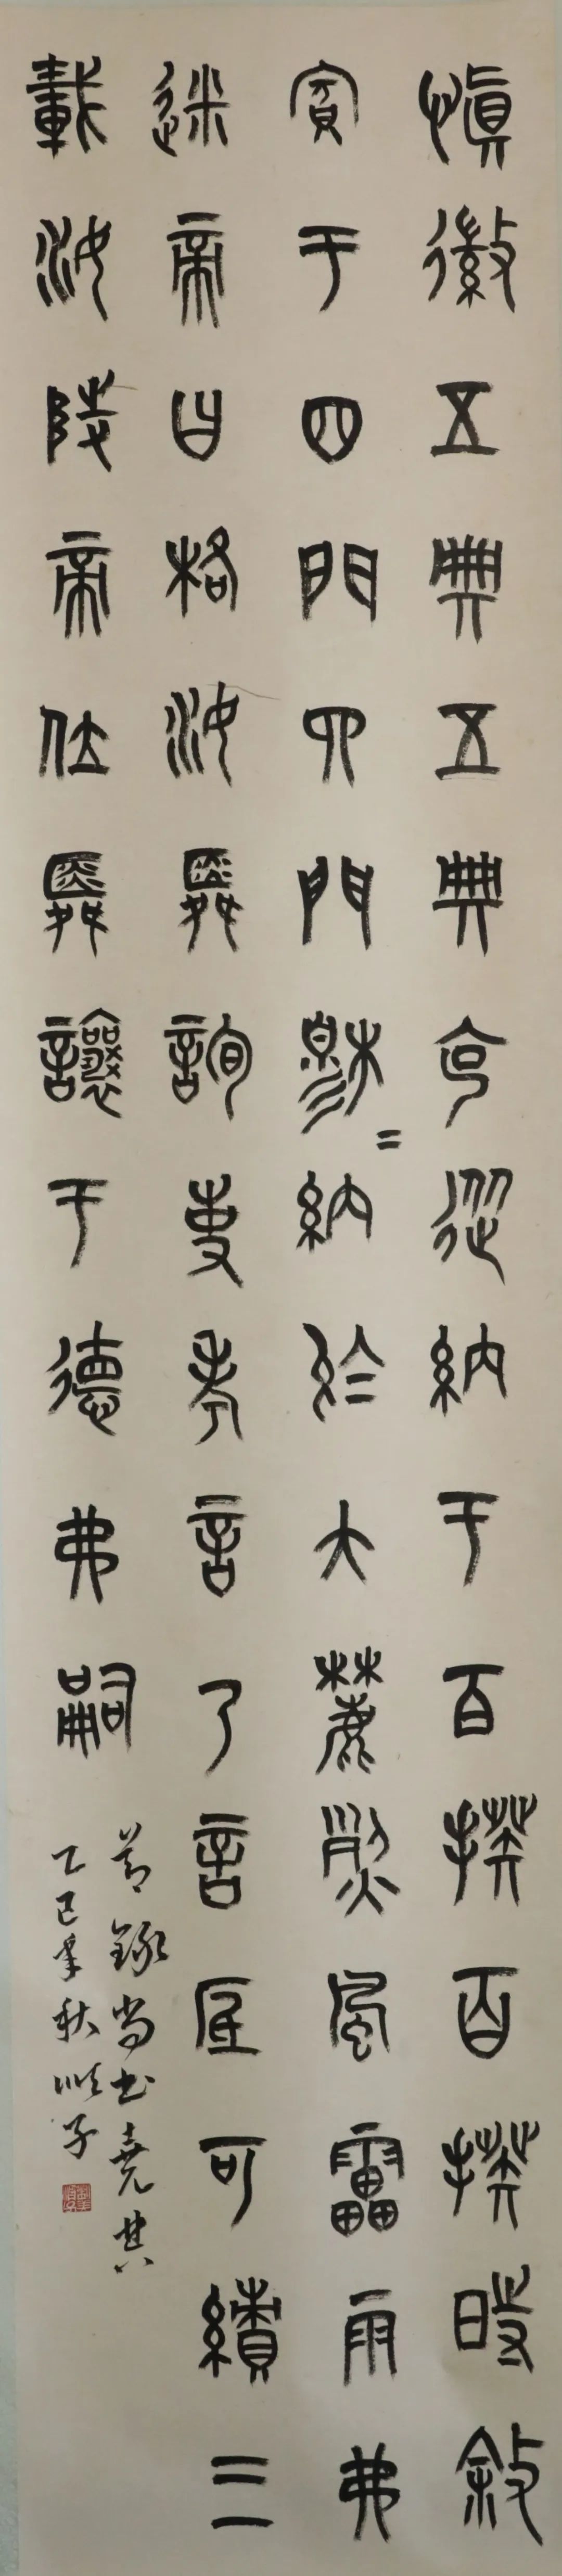 慎徽五典五典克從納于百揆百揆時敘
賓于四門四門穆=納於大麓烈風雷雨弗
迷帝曰格汝舜詢事考言乃言厎可績三
載汝陟帝位舜讓于德弗嗣
節錄尚書堯典
乙巳年秋順子